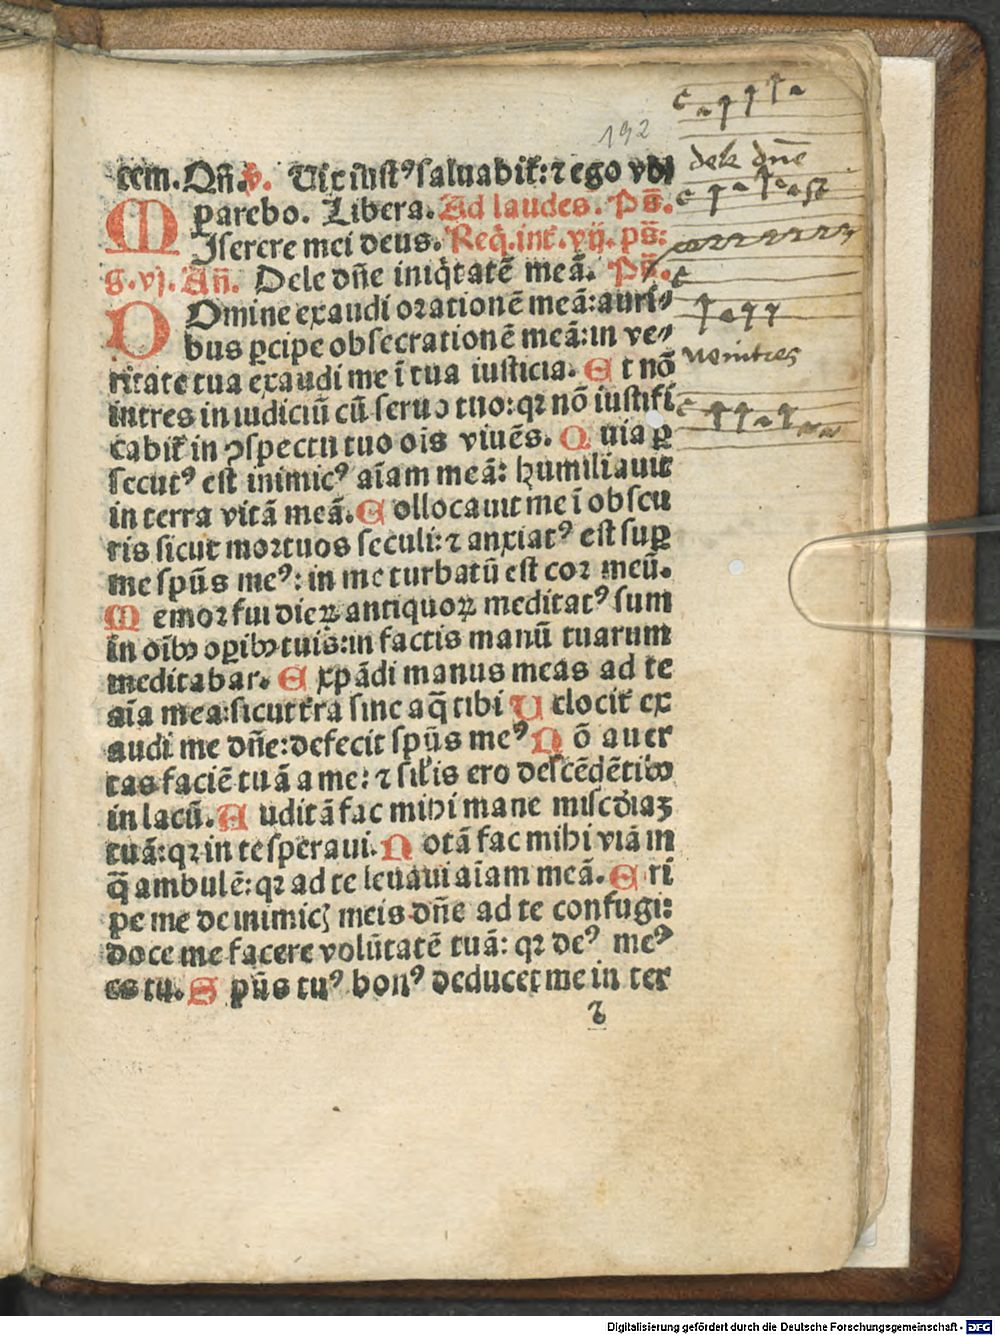 192
tem. Qñ. v. Vix iustꝰ saluabit̃: ⁊ ego vbi
parebo. Libera. Ad laudes. Ps̃.
MIserere mei deus. Req̃. int̃. vij. ps̃:
g. vj. Añ. Dele dñe iniq̃tatē meā. Ps̃.
DOmine exaudi orationē meā: auri⸗
bus ꝑcipe obsecrationē meā: in ve⸗
ritate tua exaudi me ī tua iusticia. Et nō
intres in iudiciū cū seruo tuo: qꝛ nō iustifi
cabit̃ in ꝯspectu tuo oīs viuēs. Quia ꝑ
secutꝰ est inimicꝰ aīam meā: humiliauit
in terra vitā meā. Collocauit me ī obscu
ris sicut mortuos seculi: ⁊ anxiatꝰ est suꝑ
me sp̄us meꝰ: in me turbatū est cor meū.
Memor fui dieꝝ antiquoꝝ meditatꝰ sum
in oībꝰ oꝑibꝰ tuis: in factis manū tuarum
meditabar. Expādi manus meas ad te
aīa mea: sicut t̃ra sine aq̄ tibi Uelocit̃ ex
audi me dñe: defecit sp̄us meꝰ Nō auer
tas faciē tuā a me: ⁊ sil̃is ero descēdētibꝰ
in lacū. Auditā fac mihi mane misc̄diaꝫ
tuā: qꝛ in te speraui. Notā fac mihi viā in
q̄ ambulē: qꝛ ad te leuaui aīam meā. Eri
pe me de inimicꝭ meis dñe ad te confugi:
doce me facere volūtatē tuā: qꝛ deꝰ meꝰ
es tu. Sp̄us tuꝰ bonꝰ deducet me in ter
dele dñe
ne intres
Digitalisierung gefördert durch die Deutsche Forschungsgemeinschaft - DFG